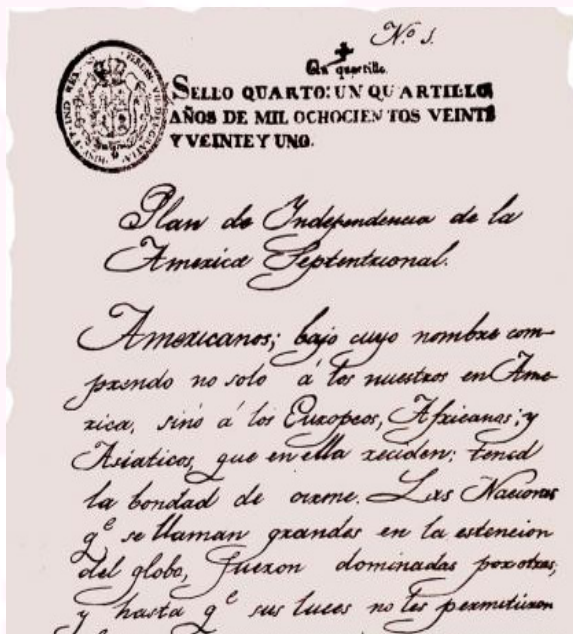 N.º 1.
Un quartillo.
SELLO QUARTO: UN QUARTILLO,
AÑOS DE MIL OCHOCIENTOS VEINTE
Y VEINTE Y UNO.
Plan de Independencia de la
America Septentrional.
Americanos; bajo cuyo nombre com
prendo no solo á los nuestros en Ame
rica, sinó á los Europeos, Africanos, y
Asiaticos, que en ella reciden: tened
la bondad de oirme. Las Naciones
q.e se llaman grandes en la estencion
del globo, fueron dominadas por otras,
y hasta q.e sus luces no les permitieron